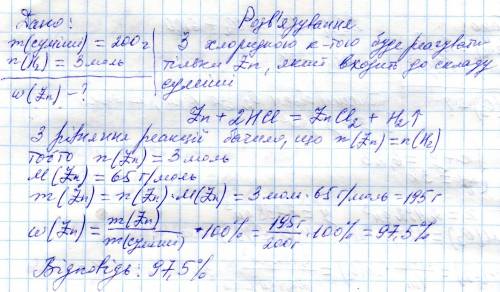 Дано:
m(суміші) = 200 г
n(H₂) = 3 моль
w(Zn) - ?
Розв'язування
З хлоридною к-тою буде реагувати
тільки Zn, який входить до складу
суміші
Zn + 2HCl = ZnCl₂ + H₂↑
З рівняння реакції бачимо, що n(Zn) = n(H₂)
тобто n(Zn) = 3 моль
M(Zn) = 65 г/моль
m(Zn) = n(Zn)·M(Zn) = 3 моль · 65 г/моль = 195 г
w(Zn) = m(Zn)/m(суміші) · 100% = 195 г/200 г · 100% = 97,5%
Відповідь: 97,5%